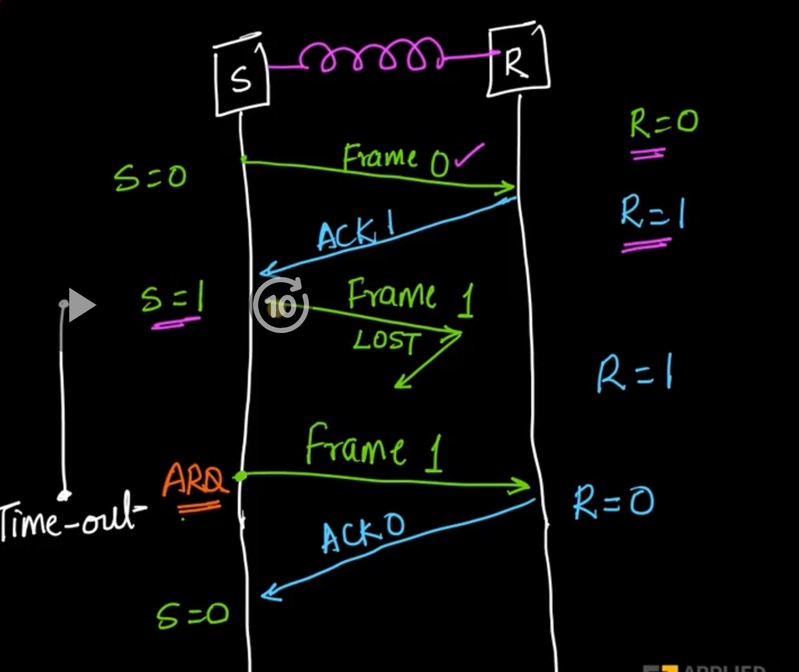 S
R
R=0
Frame 0
S=0
R=1
ACK 1
S=1
10
Frame 1
LOST
R=1
Frame 1
ARQ
R=0
Time-out
ACK 0
S=0
APPLIED